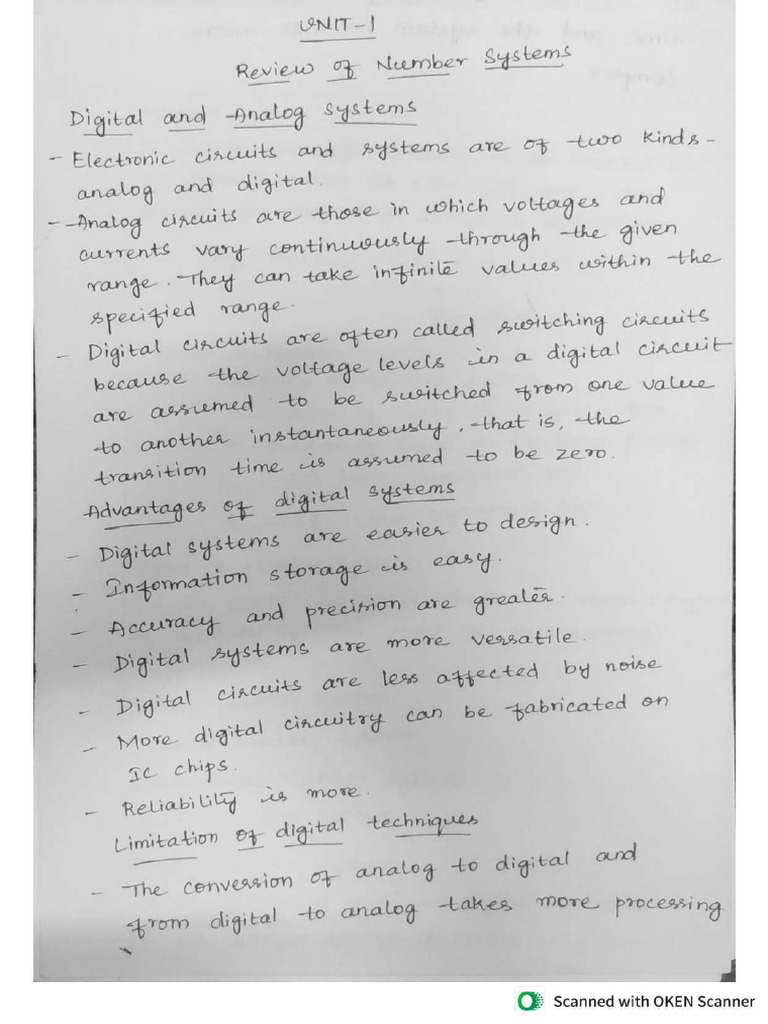 UNIT-1
Review of Number Systems
Digital and Analog systems
- Electronic circuits and systems are of two kinds -
analog and digital.
- Analog circuits are those in which voltages and
currents vary continuously through the given
range. They can take infinite values within the
specified range.
- Digital circuits are often called switching circuits
because the voltage levels in a digital circuit
are assumed to be switched from one value
to another instantaneously, that is, the
transition time is assumed to be zero.
Advantages of digital systems
- Digital systems are easier to design.
- Information storage is easy.
- Accuracy and precision are greater.
- Digital systems are more versatile.
- Digital circuits are less affected by noise
- More digital circuitry can be fabricated on
IC chips.
- Reliability is more.
Limitation of digital techniques
- The conversion of analog to digital and
from digital to analog takes more processing
Scanned with OKEN Scanner